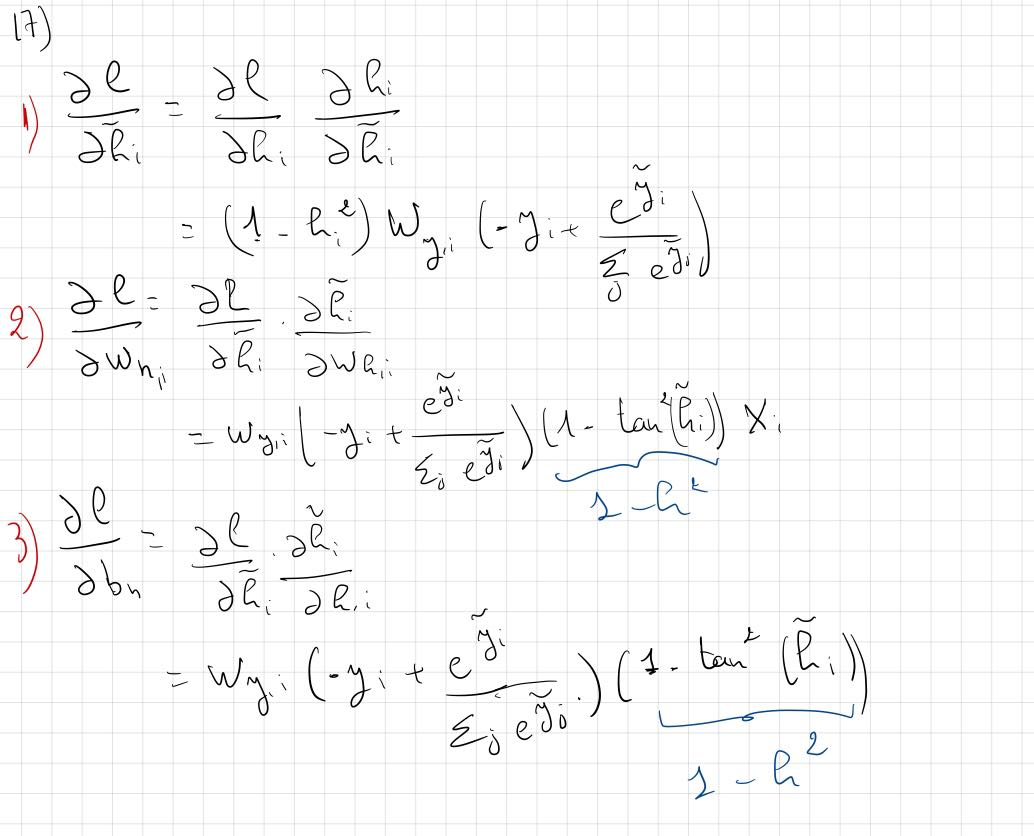 17)
1) ∂ℓ/∂h̃ᵢ = ∂ℓ/∂hᵢ ∂hᵢ/∂h̃ᵢ
= (1 - hᵢ²) W_{y,i} (-yᵢ + e^{ỹᵢ} / Σ_j e^{ỹ_j})
2) ∂ℓ/∂W_{h,i} = ∂ℓ/∂h̃ᵢ · ∂h̃ᵢ/∂W_{h,i}
= W_{y,i} (-yᵢ + e^{ỹᵢ} / Σ_j e^{ỹ_j}) (1 - tan²(h̃ᵢ)) Xᵢ
1 - h²
3) ∂ℓ/∂b_h = ∂ℓ/∂h̃ᵢ · ∂h̃ᵢ/∂h,ᵢ
= W_{y,i} (-yᵢ + e^{ỹᵢ} / Σ_j e^{ỹ_j}) (1 - tan²(h̃ᵢ))
1 - h²